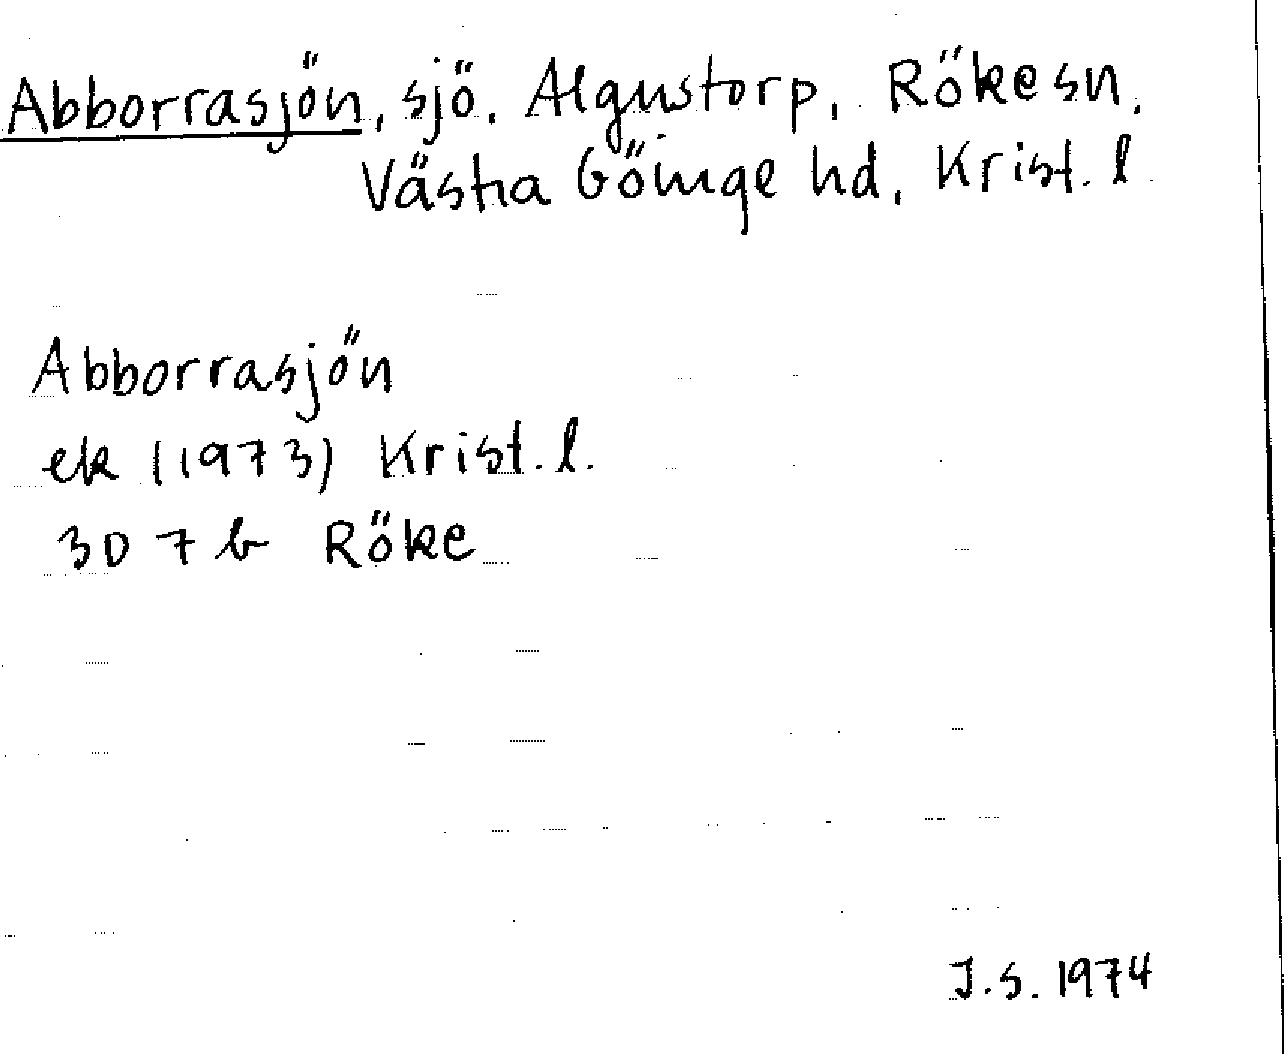 Abborrasjön, sjö. Algustorp, Röke sn.
Västra Göinge hd, Krist. l.
Abborrasjön
ek (1973) Krist. l.
3D 7b Röke
J.S. 1974